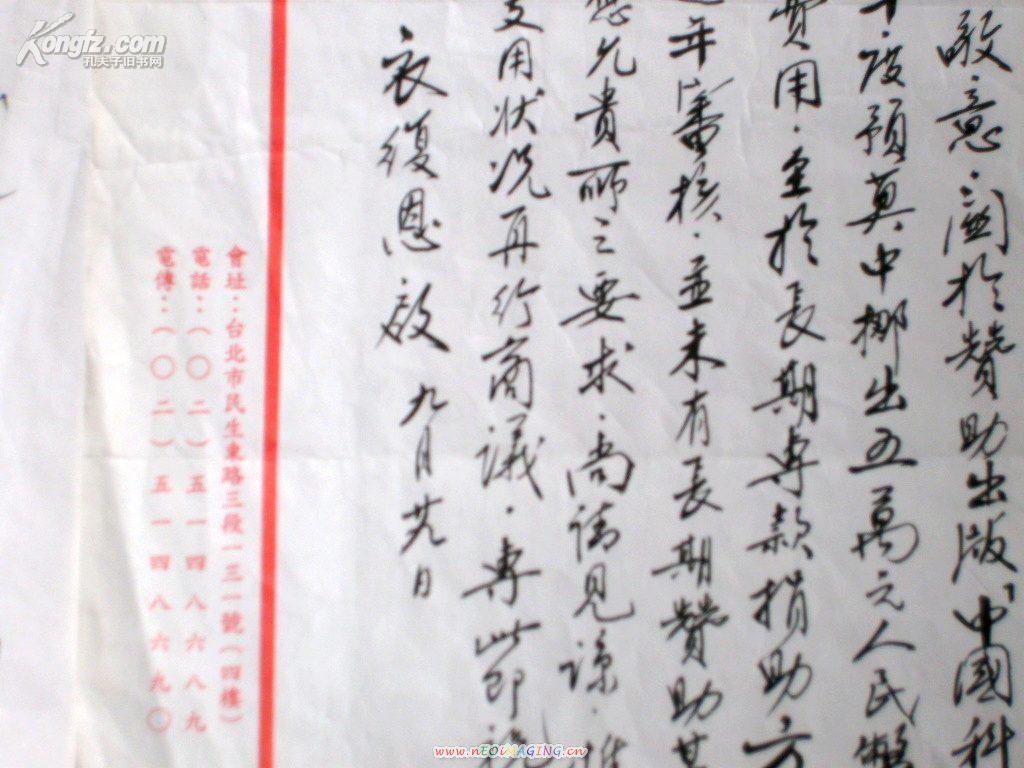 敬意.關於贊助出版「中國科
年度預算中挪出五萬元人民幣
費用.至於長期專款捐助方
逐年審核.並未有長期贊助其
允貴所之要求.尚請見諒.惟
支用狀況再行商議.專此即祝
衣復恩.啟 九月廿九日
會址:台北市民生東路三段一三一號(四樓)
電話:(〇二)五一四八六八九
電傳:(〇二)五一四八六九〇
Kongfz.com
孔夫子旧书网
www.nEOiMAGING.cn